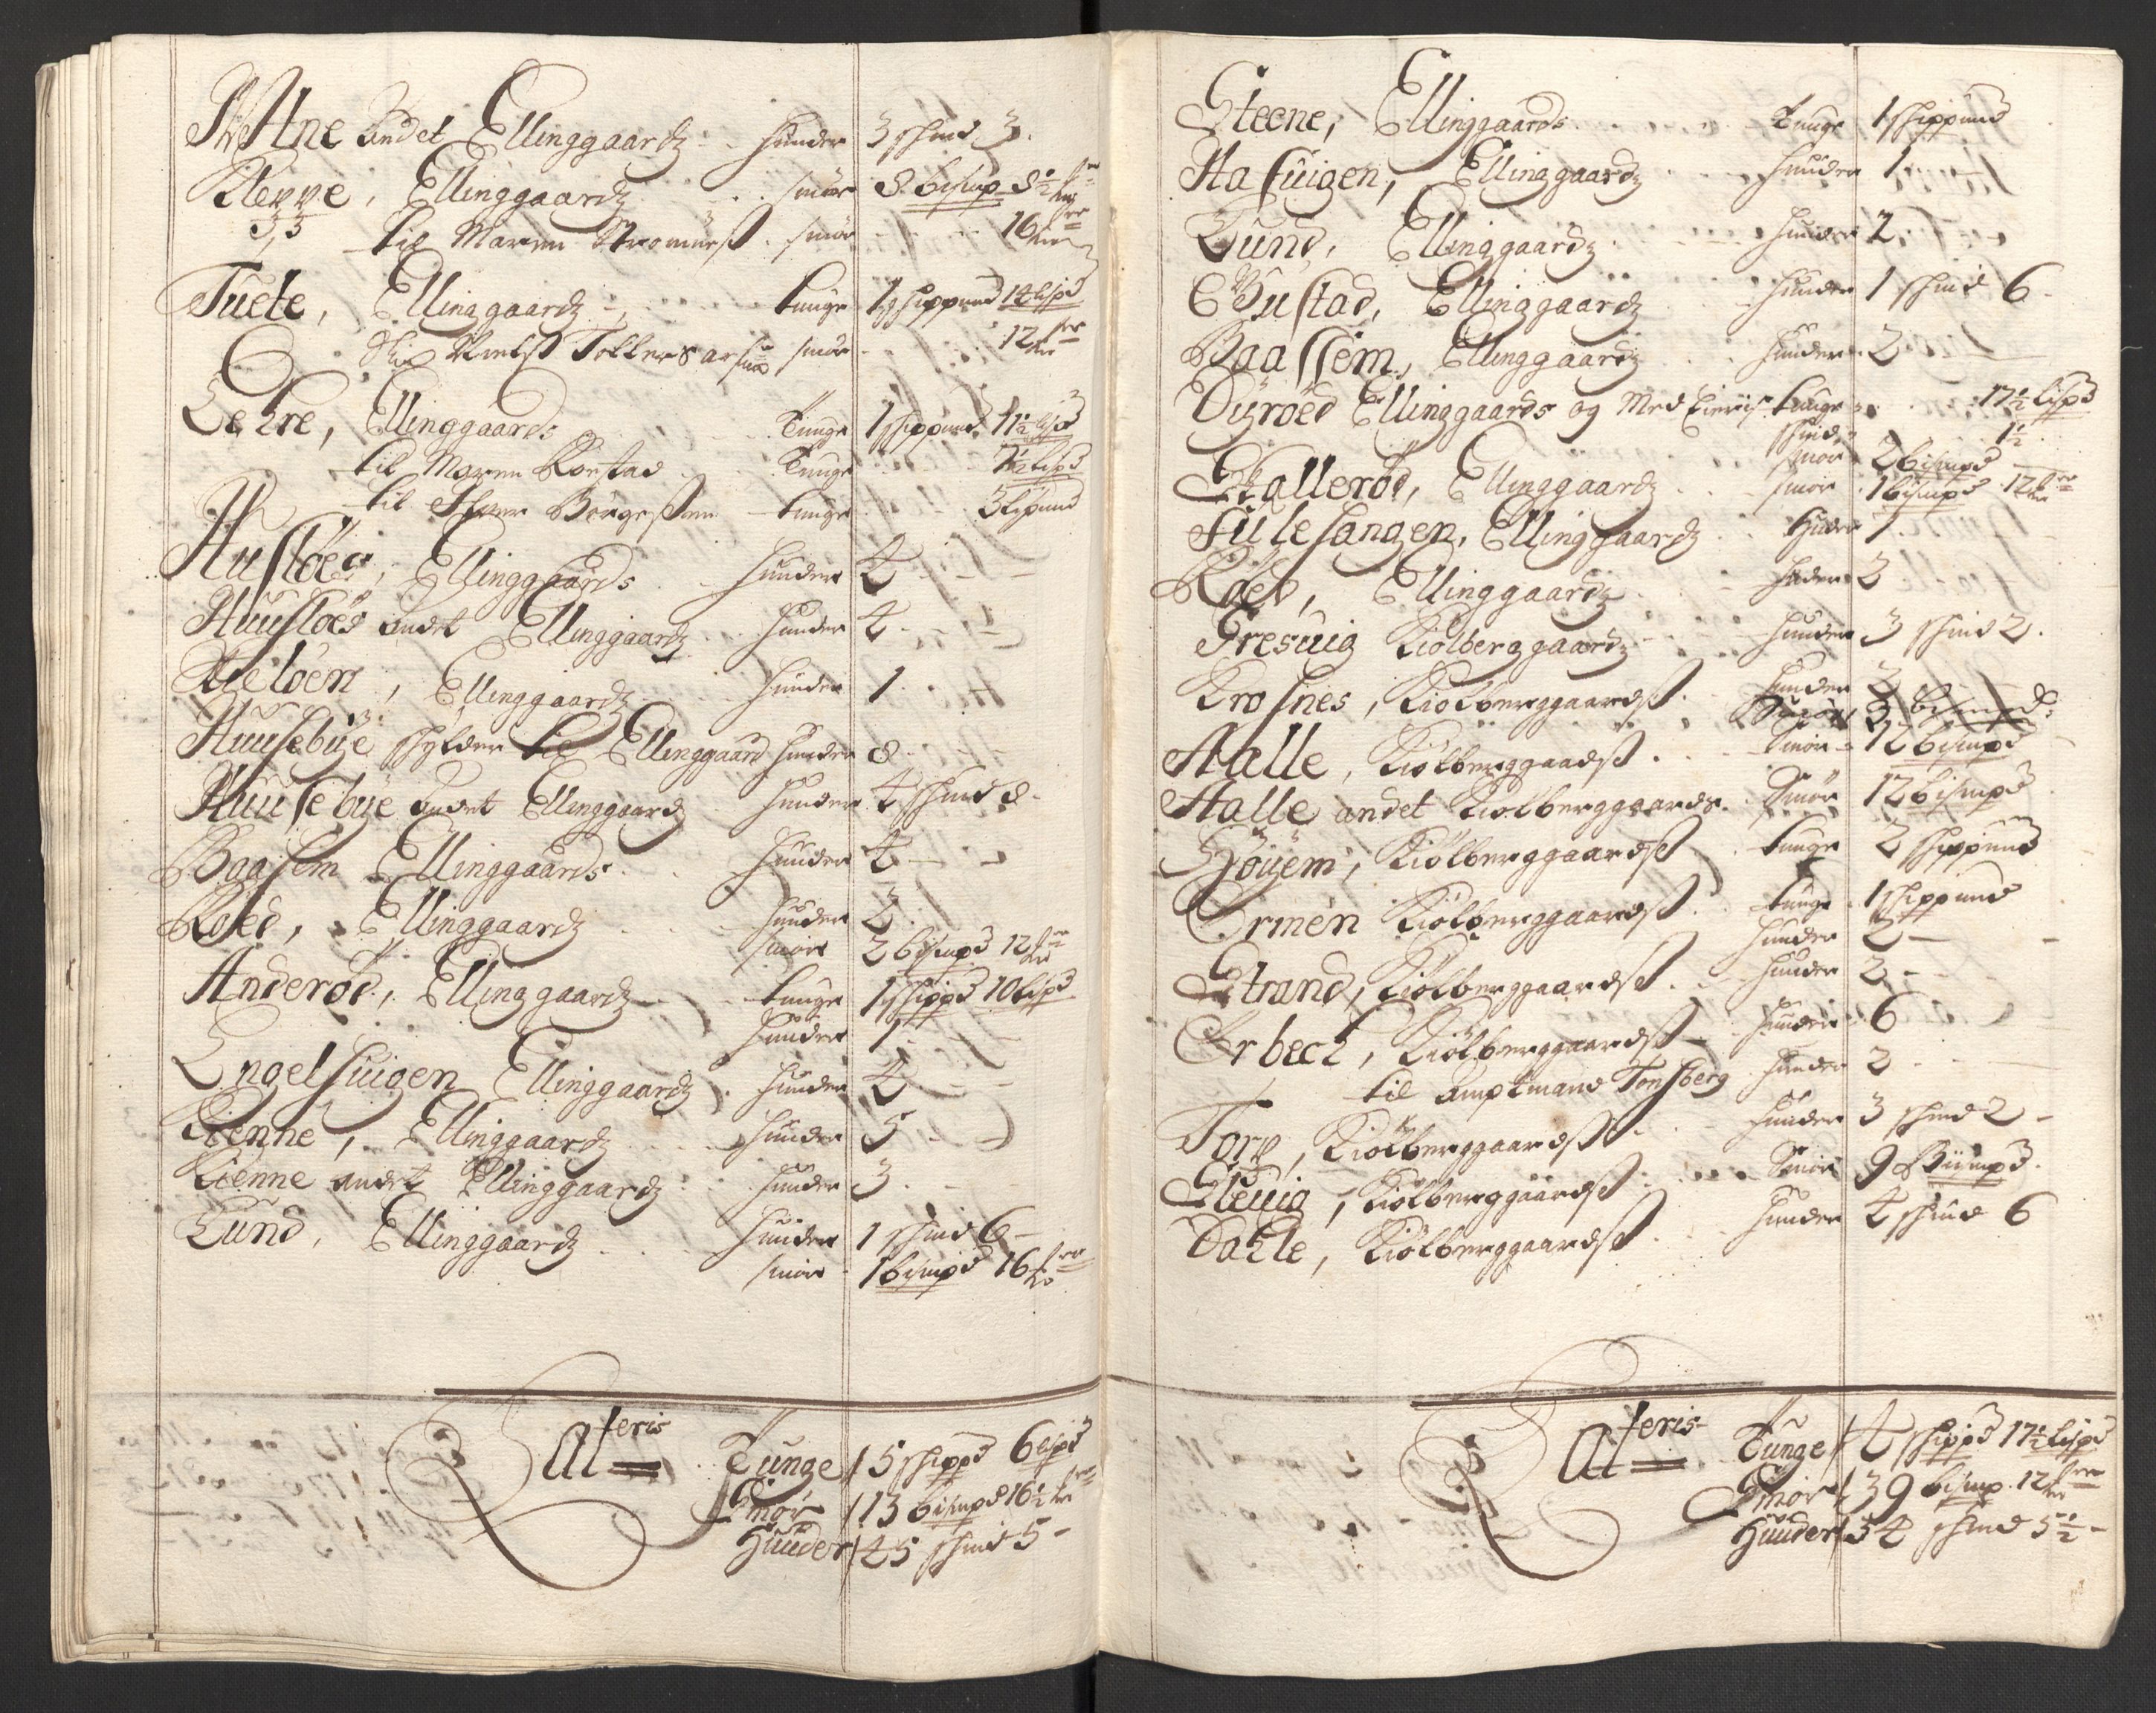 Ane andet Ellinggaardz huuder 3 skind 3.
Kleppe, Ellinggaardz smör 8 bismp 8½ mrr
til Maren smör 16 mrr
Tuete, Ellinggaardz tunge 1 skippund 14 lispd
Niels Tollersøn smör 12 mrr
Lehre, Ellinggaards Tunge 1 skippund 11½ lispd
til Maren Korstad Tunge 7½ lispd
til Iffuer Børgessen tunge 3 lispund
Husløes, Ellinggaards huuder 4
Huusløes andet Ellinggaardz huuder 4
Kieløen, Ellinggaardz huuder 1
Huusebÿe skylder til Ellinggaard huuder 8
Huusebÿe andet Ellinggaard huuder 4 skind 8
Baasem Ellinggaards huuder 4
Roed, Ellinggaardz huuder 2
smör 2 bismpd 12 mrr
Anderød, Ellinggaardz tunge 1 skippd 10 lispd
huuder 1
Engelsuigen Ellinggaardz huuder 4
Kienne, Ellinggaardz huuder 5
Kienne andet Ellinggaardz huuder 3
Lund, Ellinggaardz huuder 1 skind 6
smör 1 bismpd 16 mrr
Lateris Tunge 5 skippd 6 lispd
Smör 13 bismpd 16½ mrr
Huuder 45 skind 5
Steene, Ellinggaards tunge 1 skippund
Hasuigen, Ellinggaardz huuder 1
Lund, Ellinggaardz huuder 2
Gustad, Ellinggaardz huuder 1 skind 6
Baassem, Ellinggaardz huuder 2
Dÿrøed Ellinggaards og Med Eieriis tunge 17½ lispd
skind 1½
smör 2 bismpd
Skallerød, Ellinggaardz smör 1 bismpd 12 mrr
Fuglesangen, Ellinggaardz Huder 1
Roed, Ellinggaardz huder 3
Fresuig Kiølberggaardz huuder 3 skind 2.
Krosnes, Kiølberggaardß huuder 3
Halle, Kiølberggaadß smör 12 bismpd
Halle andet Kiølberggaards Smör 12 bismpd
Høÿem, Kiølberggaardß tunge 2 skippund
Ormen Kiølberggaardß tunge 1 skippund
huuder 2
Strand, Kiølberggaardß huuder 2
Orbech, Kiølberggaardß huuder 6
til Amptmand Tonsberg huuder 2
Torp, Kiølberggaardß huuder 3 skind 2
Sleuig, Kiølberggaardß Smör 9 Bismpd.
Dahle, Kiølberggaardß huuder 4 skind 6
Lateris Tunge 4 skippd 17½ lispd
Smör 39 bismp. 12 mrr
Huuder 34 skind 5½